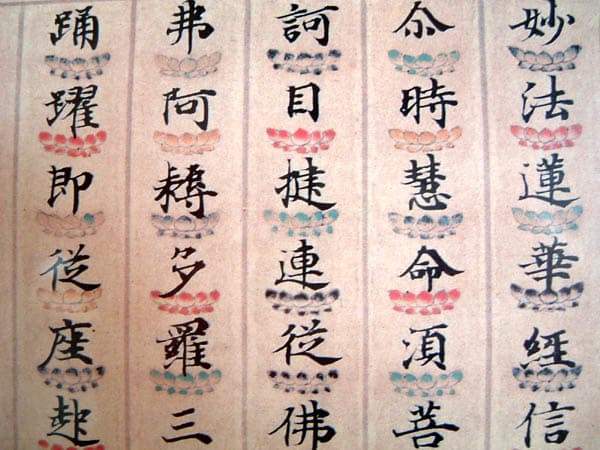 妙法蓮華經信
尒時慧命須菩
訶目揵連從佛
弗阿耨多羅三
踊躍即從座起